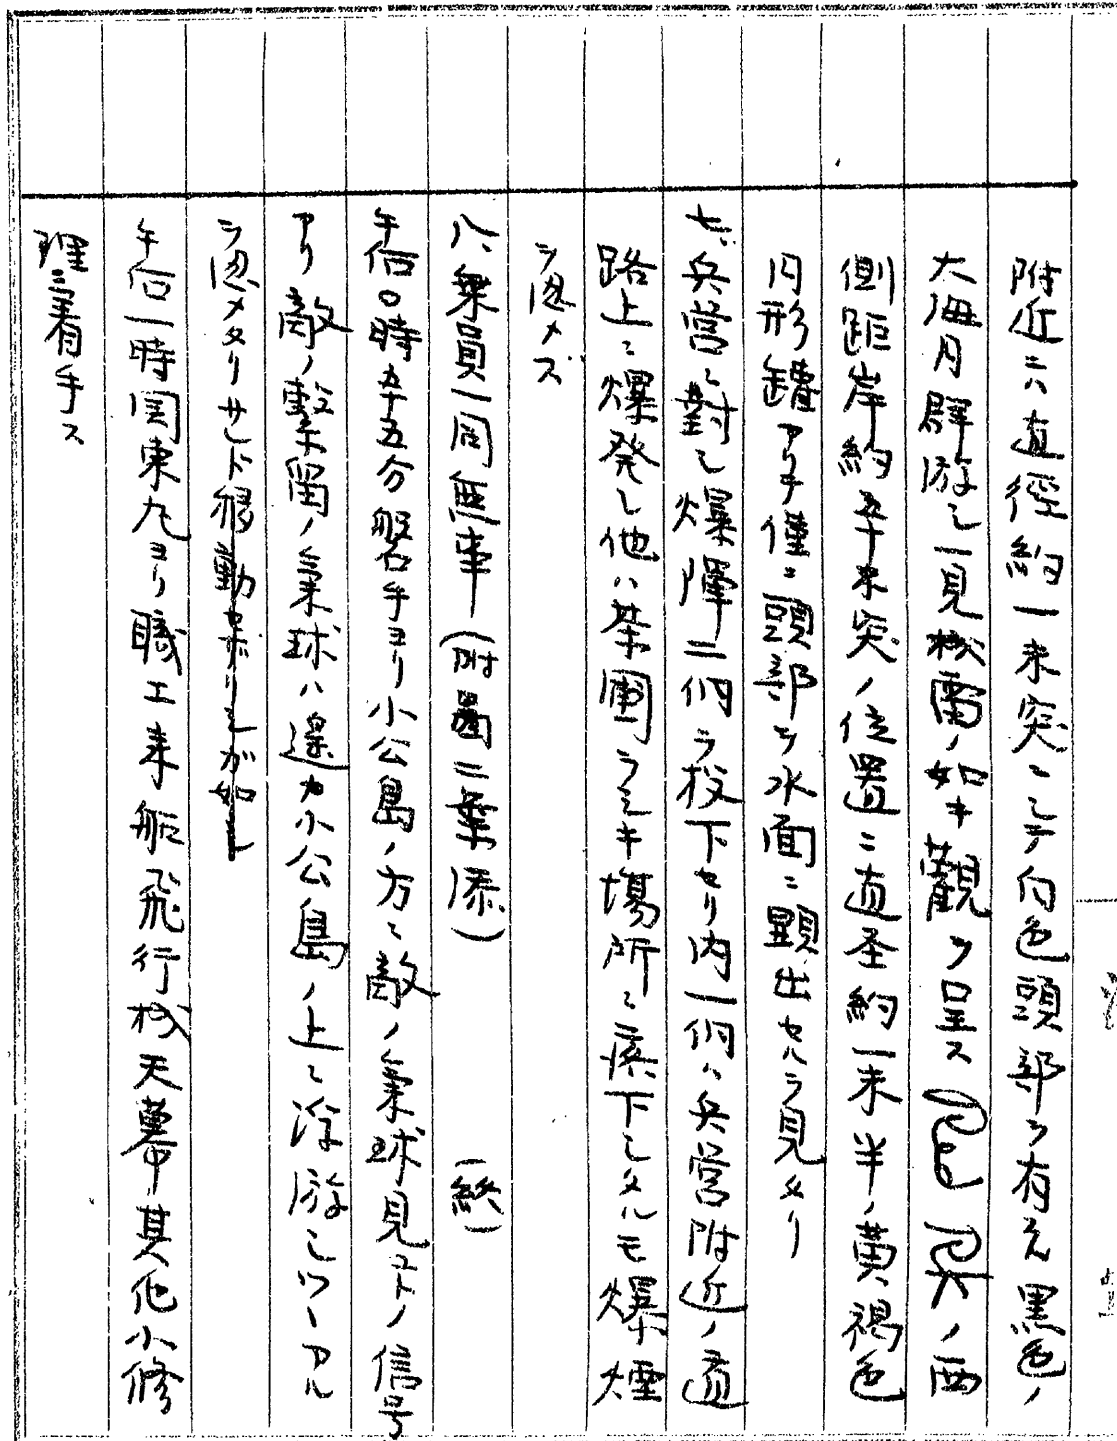 附近ニハ直徑約一米突ニシテ白色頭部ヲ有スル黒色ノ
大海月群游シ一見機雷ノ如キ観ヲ呈ス ノ西
側距岸約五十米突ノ位置ニ直径約一米半ノ黄褐色
円形罐アリテ僅ニ頭部ヲ水面ニ顕出セルヲ見タリ
七、兵営ニ對シ爆弾二個ヲ投下セリ内一個ハ兵営附近ノ道
路上ニ爆発シ他ハ茶園ラシキ場所ニ落下シタルモ爆煙
ヲ認メズ
八、乗員一同無事(附圖二葉添) (終)
午后〇時五十五分磐手ヨリ小公島ノ方ニ敵ノ氣球見ユトノ信号
アリ敵ノ繋留ノ氣球ハ遥カ小公島ノ上ニ浮游シツヽアル
ヲ認メタリサレド移動セザリシガ如シ
午后一時関東丸ヨリ職工来船飛行機天幕其他小修
理ニ着手ス